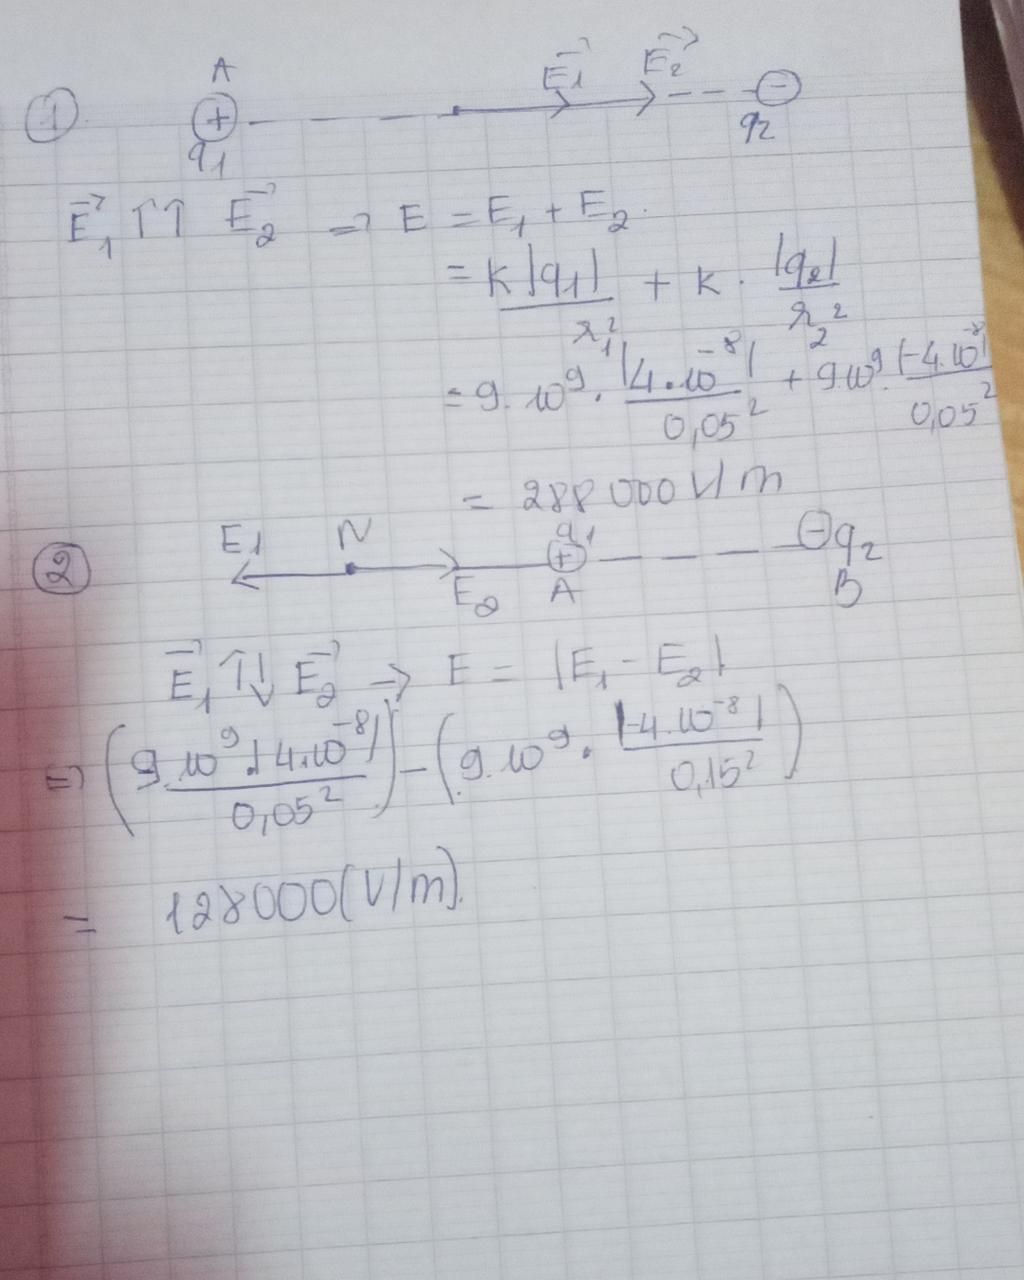 ① A E₁→ E₂→
+ -
q₁ q₂
E₁→ ↑↑ E₂→ => E = E₁ + E₂.
= k|q₁|/r₁² + k . |q₂|/r₂²
= 9. 10⁹. |4.10⁻⁸|/0,05² + 9.10⁹. |-4.10⁻⁸|/0,05²
= 288 000 V/m
② E₁ N q₁ q₂
+ -
E₂ A B
E₁→ ↑↓ E₂→ -> E = |E₁ - E₂|
=> (9.10⁹.|4.10⁻⁸|/0,05²) - (9.10⁹. |-4.10⁻⁸|/0,15²)
= 128000(V/m).